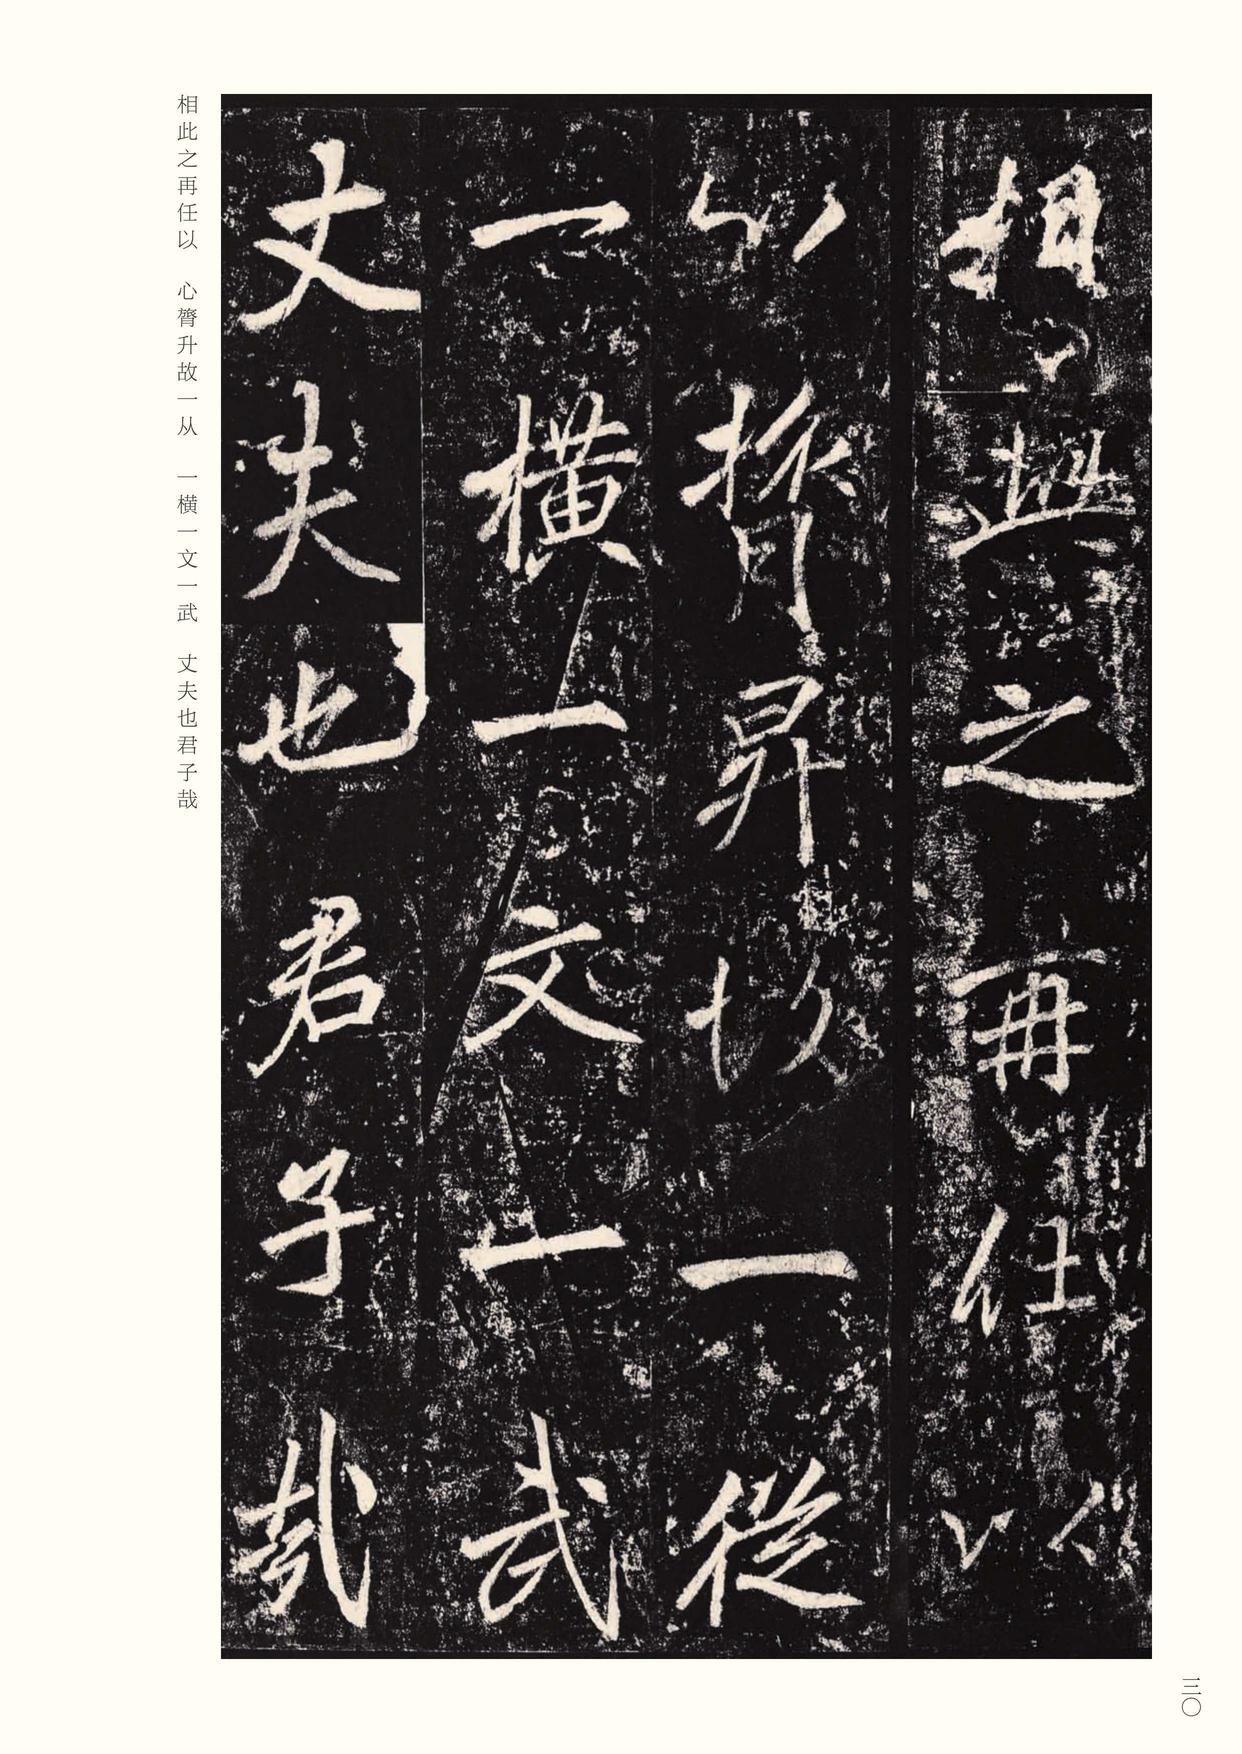 相此之再任以
心膂昇故一從
一橫一文一武
丈夫也君子哉
相此之再任以　心膂升故一从　一横一文一武　丈夫也君子哉
三〇